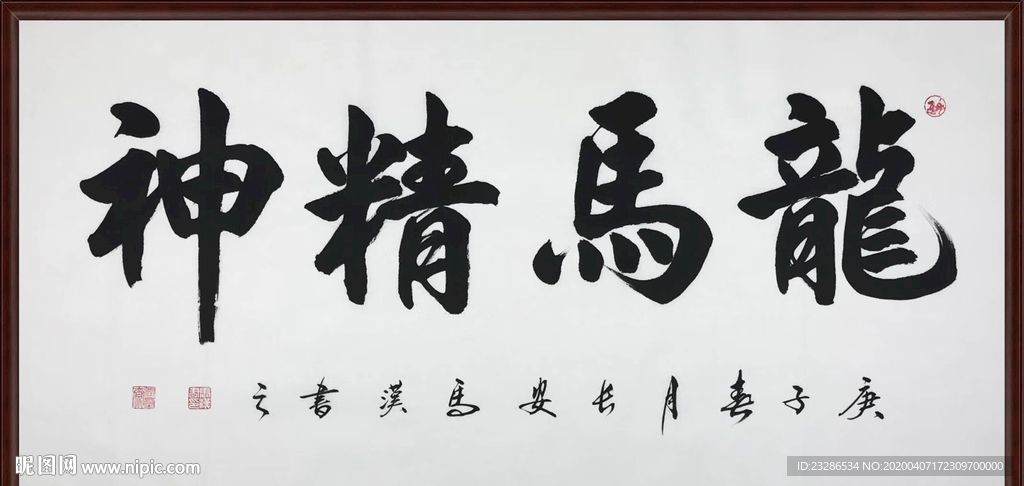 龍馬精神
庚子春月長安馬漢書之
昵图网 www.nipic.com
ID:23286534 NO:20200407172309700000